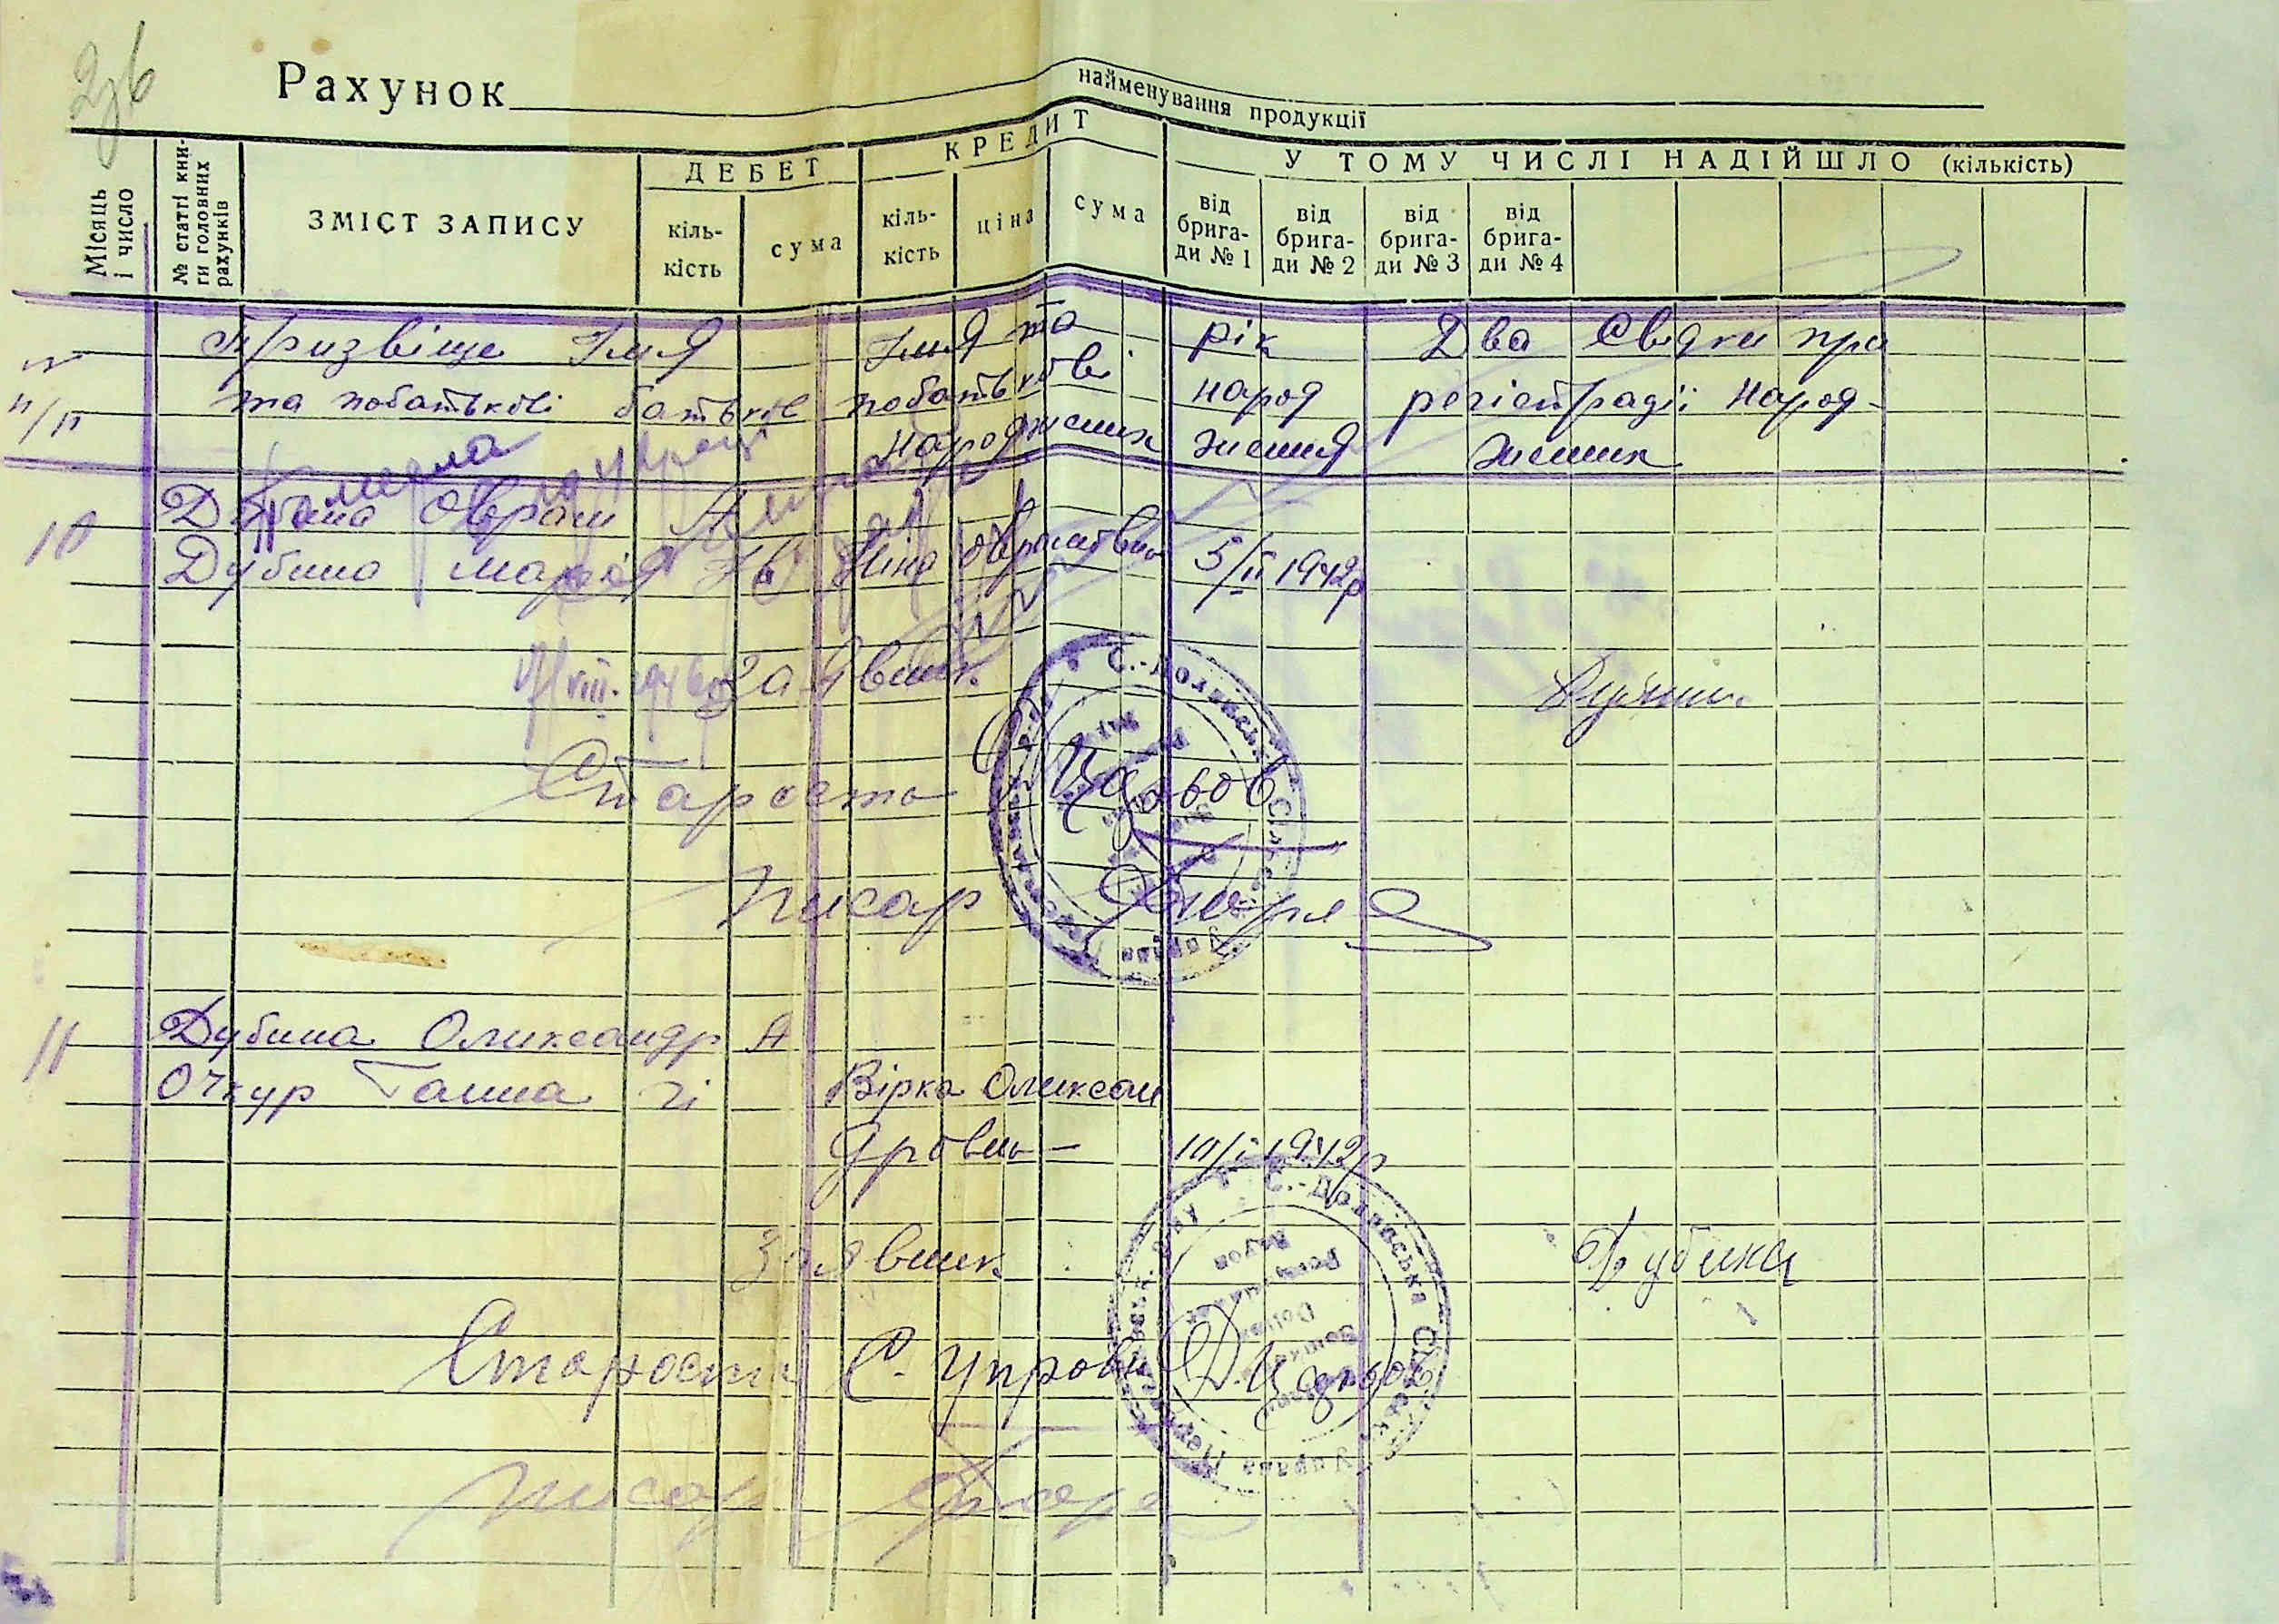 Рахунок
найменування продукції
Місяць і число
№ статті кни-
ги головних
рахунків
ЗМІСТ ЗАПИСУ
ДЕБЕТ
кіль-
кість
сума
КРЕДИТ
кіль-
кість
ціна
сума
У ТОМУ ЧИСЛІ НАДІЙШЛО (кількість)
від
брига-
ди № 1
від
брига-
ди № 2
від
брига-
ди № 3
від
брига-
ди № 4
№ п/п
призвіще імя
та побаткові батьків
імя та
побатькові
народження
рік
народ
ження
Два свідки при
регістрації народ-
ження
померла
10
Дубина Оврам А
Дубина Марія Ів Ніна Оврамовна 5/II 1942р
Заявник
Староста
Писар
11
Дубина Олександр А
Очкур Ганна Гі Вірка Олексан
дровна 10/I 1942р
Заявник Дубина
Староста С. Управи
Писар
С.-Долинська Сільська Управа